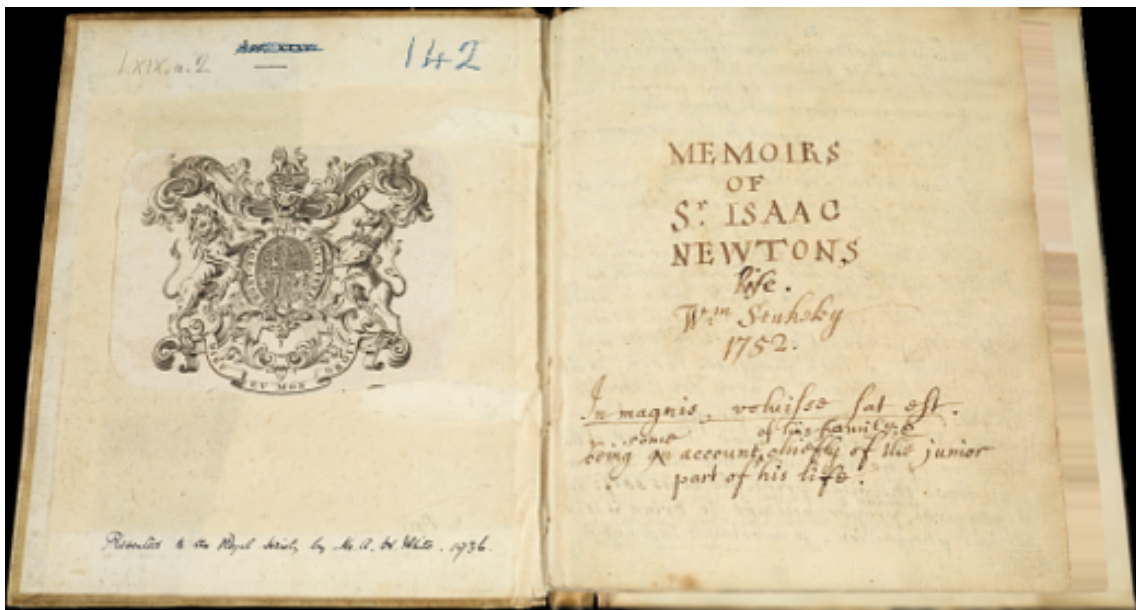 LXIX.a.2
142
DIEU ET MON DROIT
Presented to the Royal Society by Mr. A. H. White. 1936.
MEMOIRS
OF
Sʳ. ISAAC
NEWTONS
life.
Wᵐ Stukeley
1752.
In magnis, voluisse sat est.
some of his family &
being an account, chiefly of the junior
part of his life.